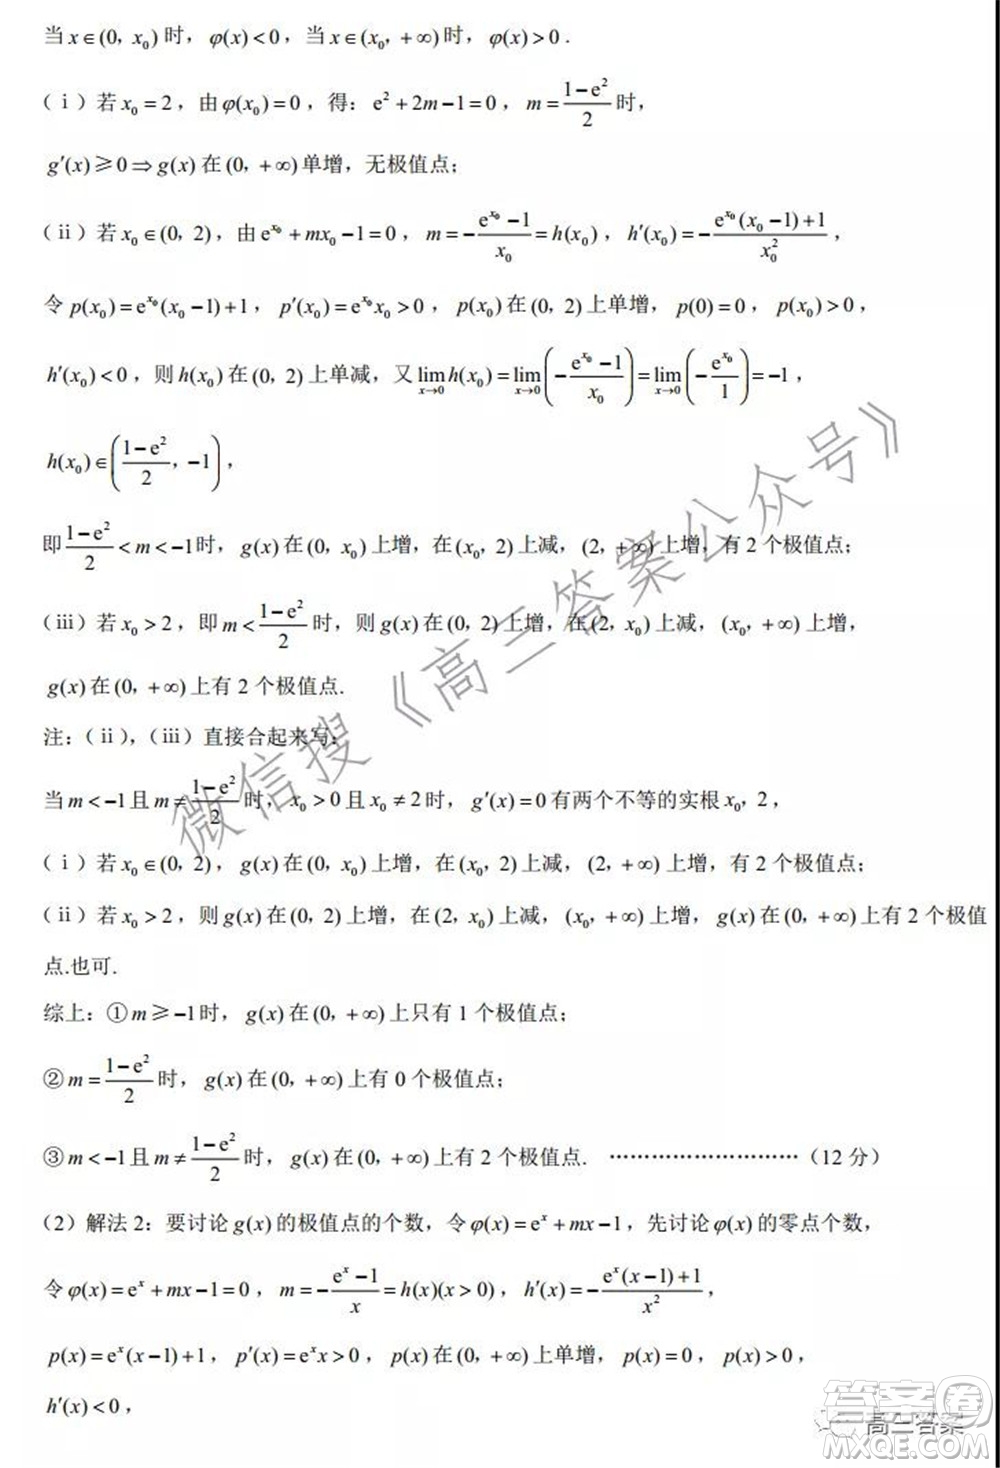 当 x∈(0, x₀) 时，φ(x)<0，当 x∈(x₀, +∞) 时，φ(x)>0.
（ⅰ）若 x₀=2，由 φ(x₀)=0，得：e²+2m−1=0，m=(1−e²)/2 时，
g′(x)≥0⇒g(x) 在 (0, +∞) 单增，无极值点；
（ⅱ）若 x₀∈(0, 2)，由 e^(x₀)+mx₀−1=0，m=−(e^(x₀)−1)/x₀=h(x₀)，h′(x₀)=−(e^(x₀)(x₀−1)+1)/x₀²，
令 p(x₀)=e^(x₀)(x₀−1)+1，p′(x₀)=e^(x₀)x₀>0，p(x₀) 在 (0, 2) 上单增，p(0)=0，p(x₀)>0，
h′(x₀)<0，则 h(x₀) 在 (0, 2) 上单减，又 lim(x→0) h(x₀)=lim(x→0) (−(e^(x₀)−1)/x₀)=lim(x→0) (−e^(x₀)/1)=−1，
h(x₀)∈((1−e²)/2, −1)，
即 (1−e²)/2<m<−1 时，g(x) 在 (0, x₀) 上增，在 (x₀, 2) 上减，(2, +∞) 上增，有 2 个极值点；
（ⅲ）若 x₀>2，即 m<(1−e²)/2 时，则 g(x) 在 (0, 2) 上增，在 (2, x₀) 上减，(x₀, +∞) 上增，
g(x) 在 (0, +∞) 上有 2 个极值点.
注：（ⅱ），（ⅲ）直接合起来写：
当 m<−1 且 m≠(1−e²)/2 时，x₀>0 且 x₀≠2 时，g′(x)=0 有两个不等的实根 x₀, 2，
（ⅰ）若 x₀∈(0, 2)，g(x) 在 (0, x₀) 上增，在 (x₀, 2) 上减，(2, +∞) 上增，有 2 个极值点；
（ⅱ）若 x₀>2，则 g(x) 在 (0, 2) 上增，在 (2, x₀) 上减，(x₀, +∞) 上增，g(x) 在 (0, +∞) 上有 2 个极值
点.也可.
综上：①m≥−1 时，g(x) 在 (0, +∞) 上只有 1 个极值点；
②m=(1−e²)/2 时，g(x) 在 (0, +∞) 上有 0 个极值点；
③m<−1 且 m≠(1−e²)/2 时，g(x) 在 (0, +∞) 上有 2 个极值点. ………………………（12 分）
（2）解法 2：要讨论 g(x) 的极值点的个数，令 φ(x)=eˣ+mx−1，先讨论 φ(x) 的零点个数，
令 φ(x)=eˣ+mx−1=0，m=−(eˣ−1)/x=h(x)(x>0)，h′(x)=−(eˣ(x−1)+1)/x²，
p(x)=eˣ(x−1)+1，p′(x)=eˣx>0，p(x) 在 (0, +∞) 上单增，p(x)=0，p(x)>0，
h′(x)<0，
微信搜《高三答案公众号》
高三答案
答案卷
MXQE.COM